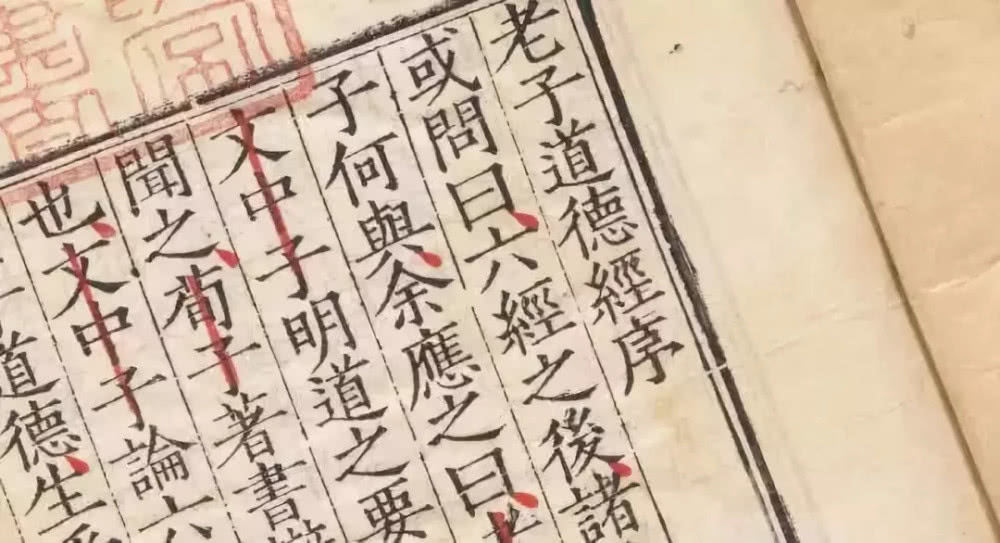 老子道德經序
或問曰六經之後諸
子何與余應之曰老
文中子明道之要
聞之荀子著書
也文中子論六
道德生